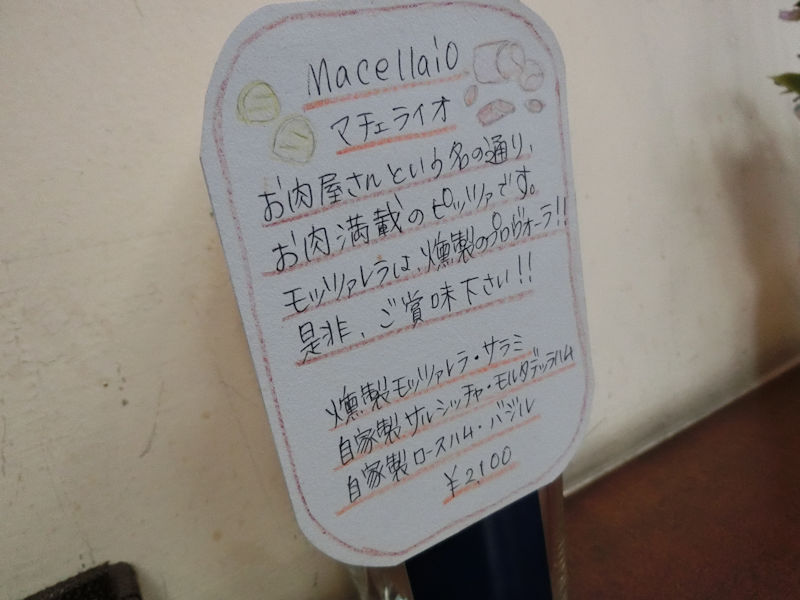 Macellaio
マチェライオ
お肉屋さんという名の通り、
お肉満載のピッツァです。
モッツァレラは、燻製のプロヴォーラ!!
是非、ご賞味下さい!!
燻製モッツァレラ・サラミ
自家製サルシッチャ・モルタデッラハム
自家製ロースハム・バジル
¥2,100